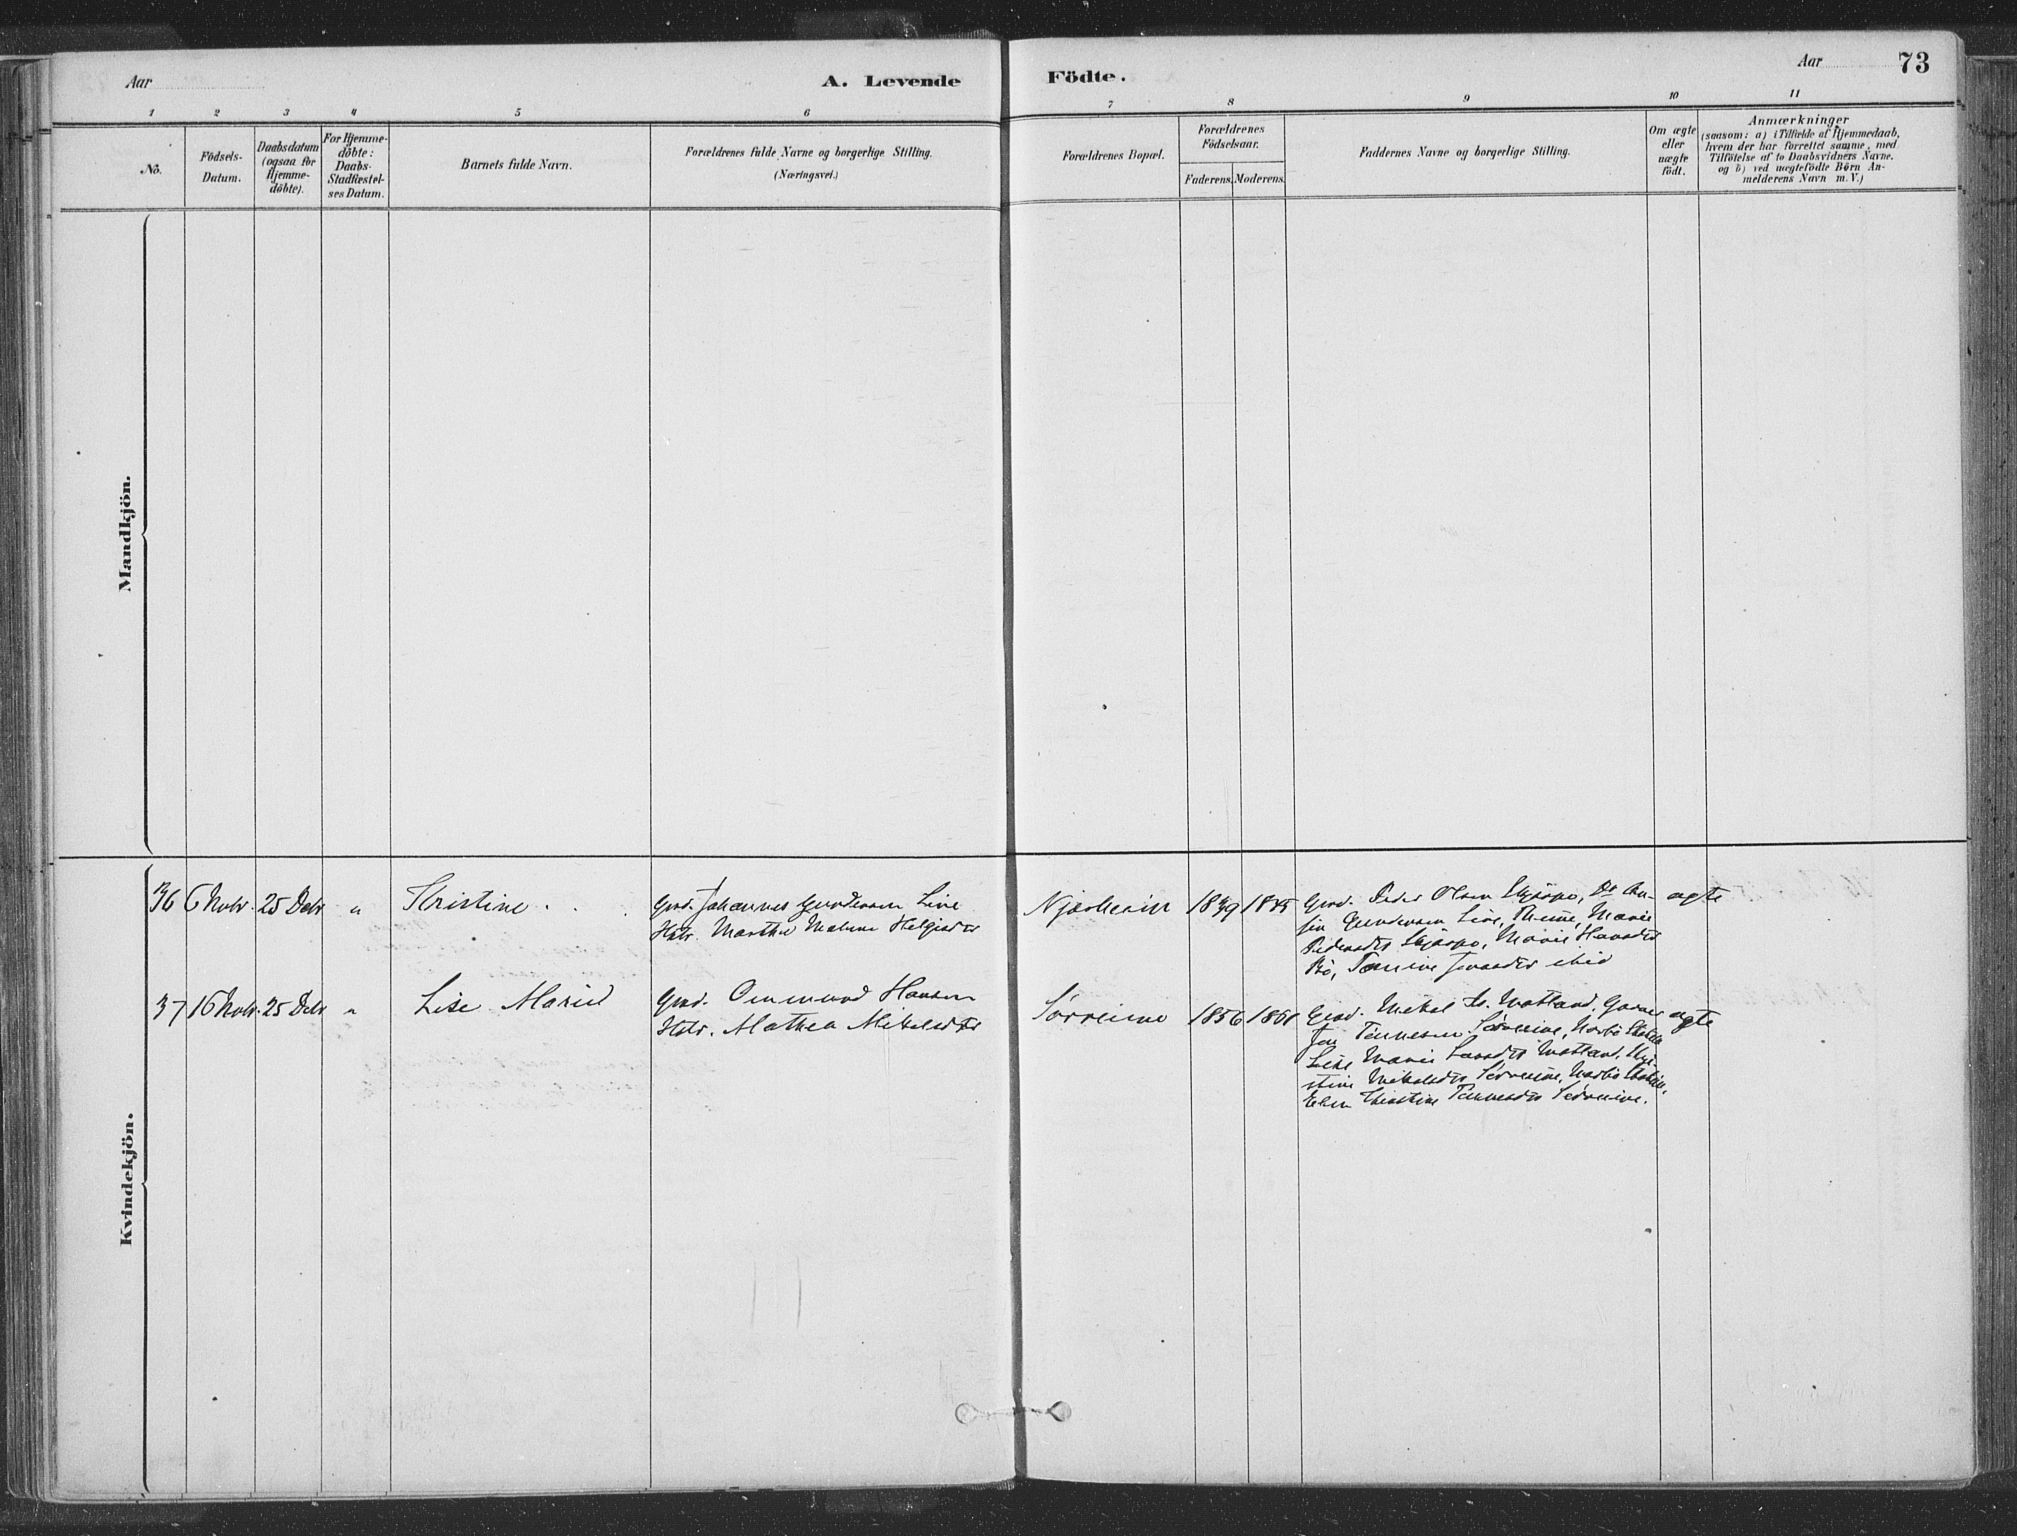 Aar
A. Levende
Födte.
Aar
73
1 2 3 4 5 6 7 8 9 10 11
No.
Födsels-
Datum.
Daabsdatum
(ogsaa for
Hjemme-
döbte).
For Hjemme-
döbte:
Daabs-
Stadfæstel-
ses Datum.
Barnets fulde Navn.
Forældrenes fulde Navne og borgerlige Stilling.
(Næringsvei.)
Forældrenes Bopæl.
Forældrenes
Födselsaar.
Faderens. Moderens.
Faddernes Navne og borgerlige Stilling.
Om ægte
eller
uægte
födt.
Anmærkninger
(saasom: a) i Tilfælde af Hjemmedaab,
hvem der har forrettet samme, med
Tilföielse af to Daabsvidners Navne,
og b) ved uægtefödte Börn An-
melderens Navn m. V.)
Mandkjön.
Kvindekjön.
36 6 Novbr. 25 Debr " Kristine
Grd. Johannes Gundersen Line
Hstr. Marthe Malene Helgesdtr
Njærheim 1839
Grd. Peder Olsen
Gundersen Line, Marie
Pedersdtr Marie Hansdtr
Bö, ibid
ægte
37 16 Novbr. 25 Debr " Lise Marie
Grd. Ommund Hansen
Hstr. Mathea Mikalsdtr
Sörreime 1856 1861
Grd. Mikal Matland,
Tönnesen Sörreime,
Lise Marie Larsdtr Matland,
Mikalsdtr Sörreime,
Tönnesdtr Sörreime.
ægte